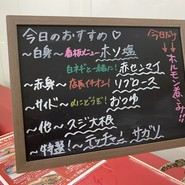 今日のおすすめ♡
～白身～ 看板メニュー ホソ塩
白ネギと一緒に! 赤センマイ
～赤身～ 店長イチオシ! リブロース
～サイド～ 〆にどうぞ! おつゆ
～他～ スジ大根
～特製! テッチャン サガリ
今日だけ
ホルモン煮込み!!